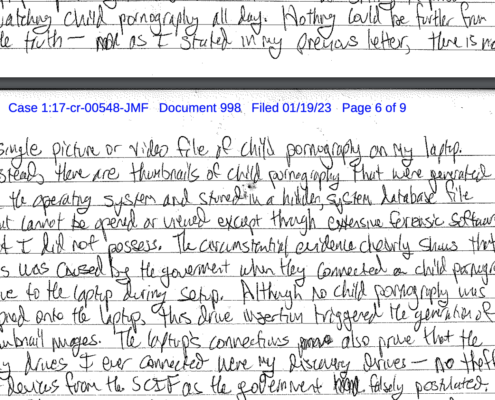 atching child pornography all day. Nothing could be further from
e truth — as I stated in my previous letter, there is no
Case 1:17-cr-00548-JMF Document 998 Filed 01/19/23 Page 6 of 9
single picture or video file of child pornography on my laptop.
stead, there are thumbnails of child pornography that were generated
the operating system and stored in a hidden system database file
ut cannot be opened or viewed except through extensive forensic software
t I did not possess. The circumstantial evidence clearly shows that
s was caused by the government when they connected a child pornogra
ve to the laptop during setup. Although no child pornography was
ed onto the laptop, this drive insertion triggered the generation of
umbnail images. The laptop's connections also prove that the
y drives I ever connected were my discovery drives — no
devices from the SCIF as the government falsely postulated.